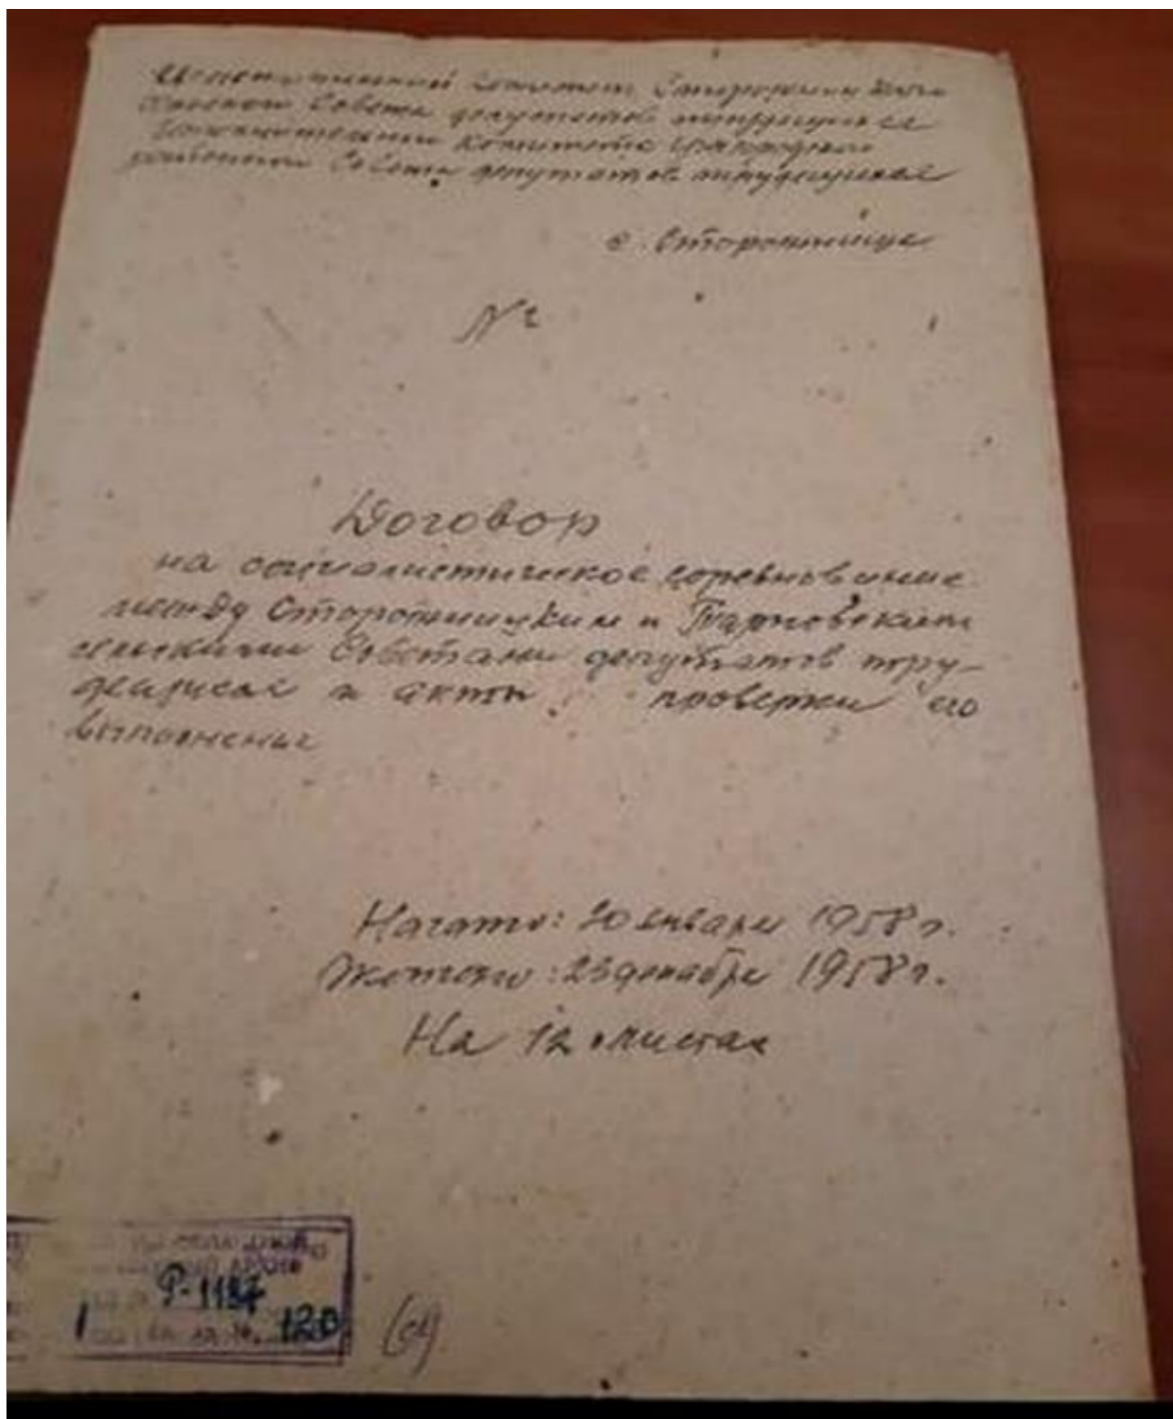 Исполнительный комитет Сторожницкого
сельского Совета депутатов трудящихся
Исполнительный комитета Ужгородского
районного Совета депутатов трудящихся
с. Сторожница
№
Договор
на социалистическое соревнование
между Сторожницким и Тарновским
сельскими Советами депутатов тру-
дящихся и акты проверки его
выполнения
Начато: 20 января 1958 г.
Окончено: 23 декабря 1958 г.
На 12 листах
Р-1187
1 120
(64)